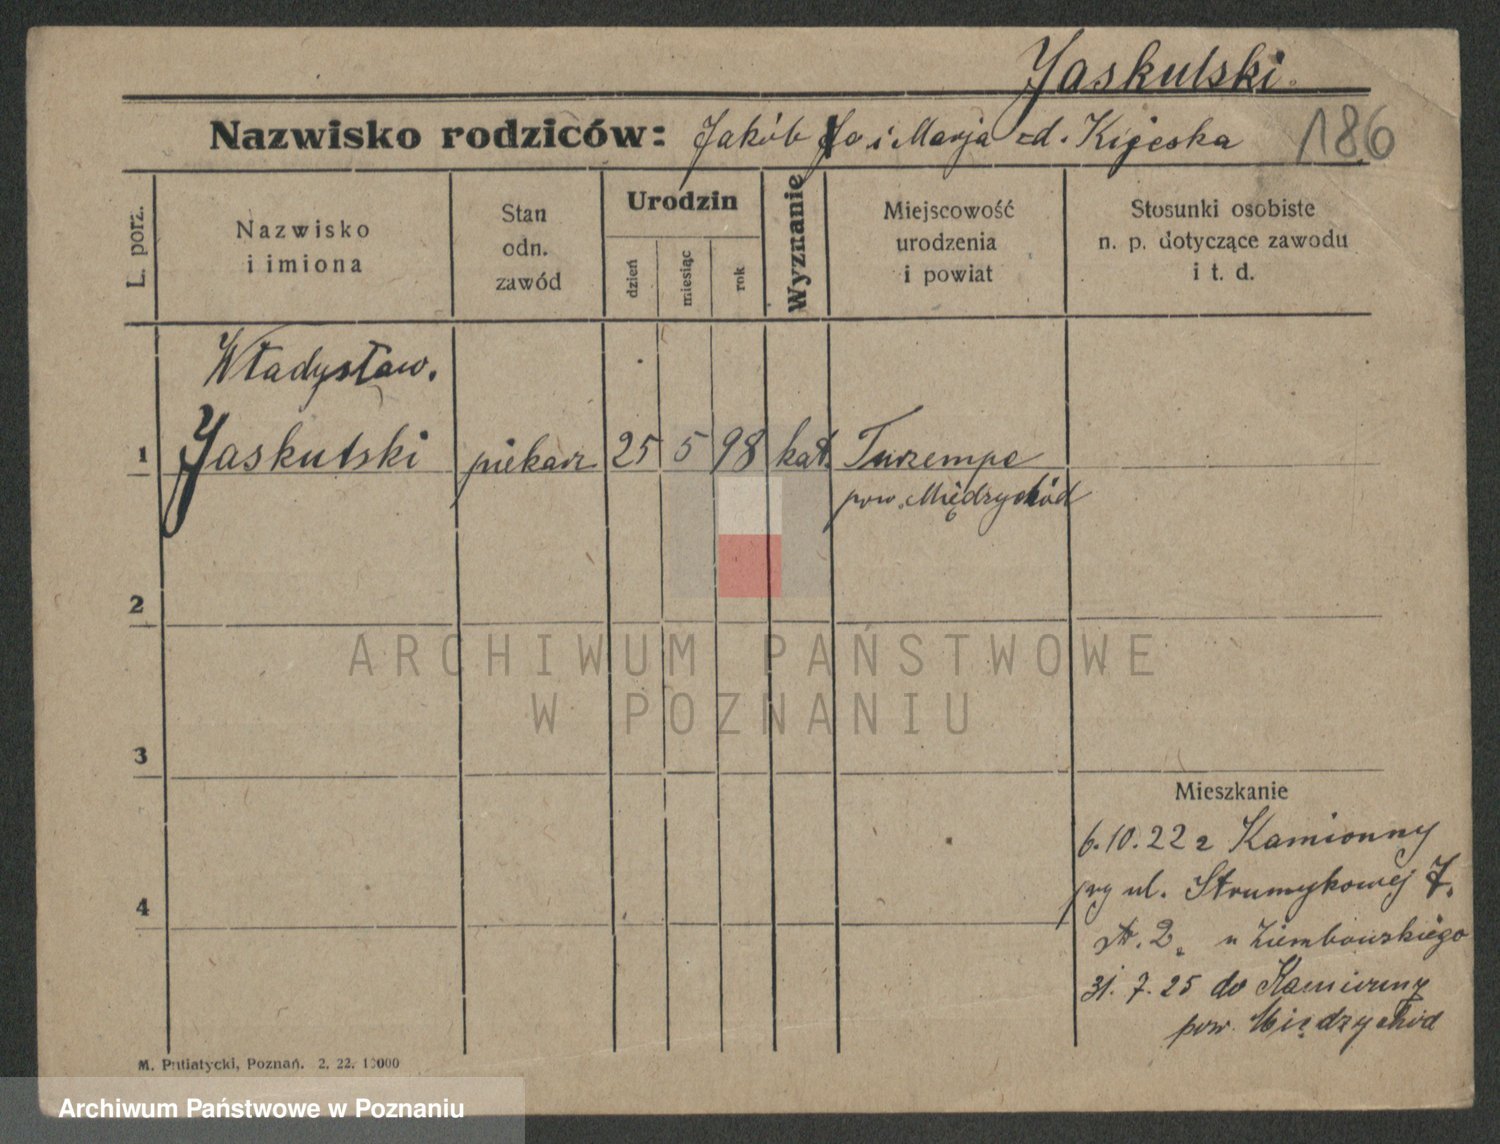 Jaskulski.
Nazwisko rodziców: Jakób J. i Marja zd. Kijeska 186
L. porz.
Nazwisko
i imiona
Stan
odn.
zawód
Urodzin
dzień
miesiąc
rok
Wyznanie
Miejscowość
urodzenia
i powiat
Stosunki osobiste
n. p. dotyczące zawodu
i t. d.
Władysław.
1 Jaskulski piekarz 25 5 98 kat.
pow. Międzychód
2
ARCHIWUM PAŃSTWOWE
W POZNANIU
3
Mieszkanie
6.10.22 z Kamionny
przy ul. Strumykowej 7.
4
st. 2. u Ziembowskiego
31.7.25 do Kamionny
pow. Międzychód
M. Putiatycki, Poznań. 2. 22. 10000
Archiwum Państwowe w Poznaniu